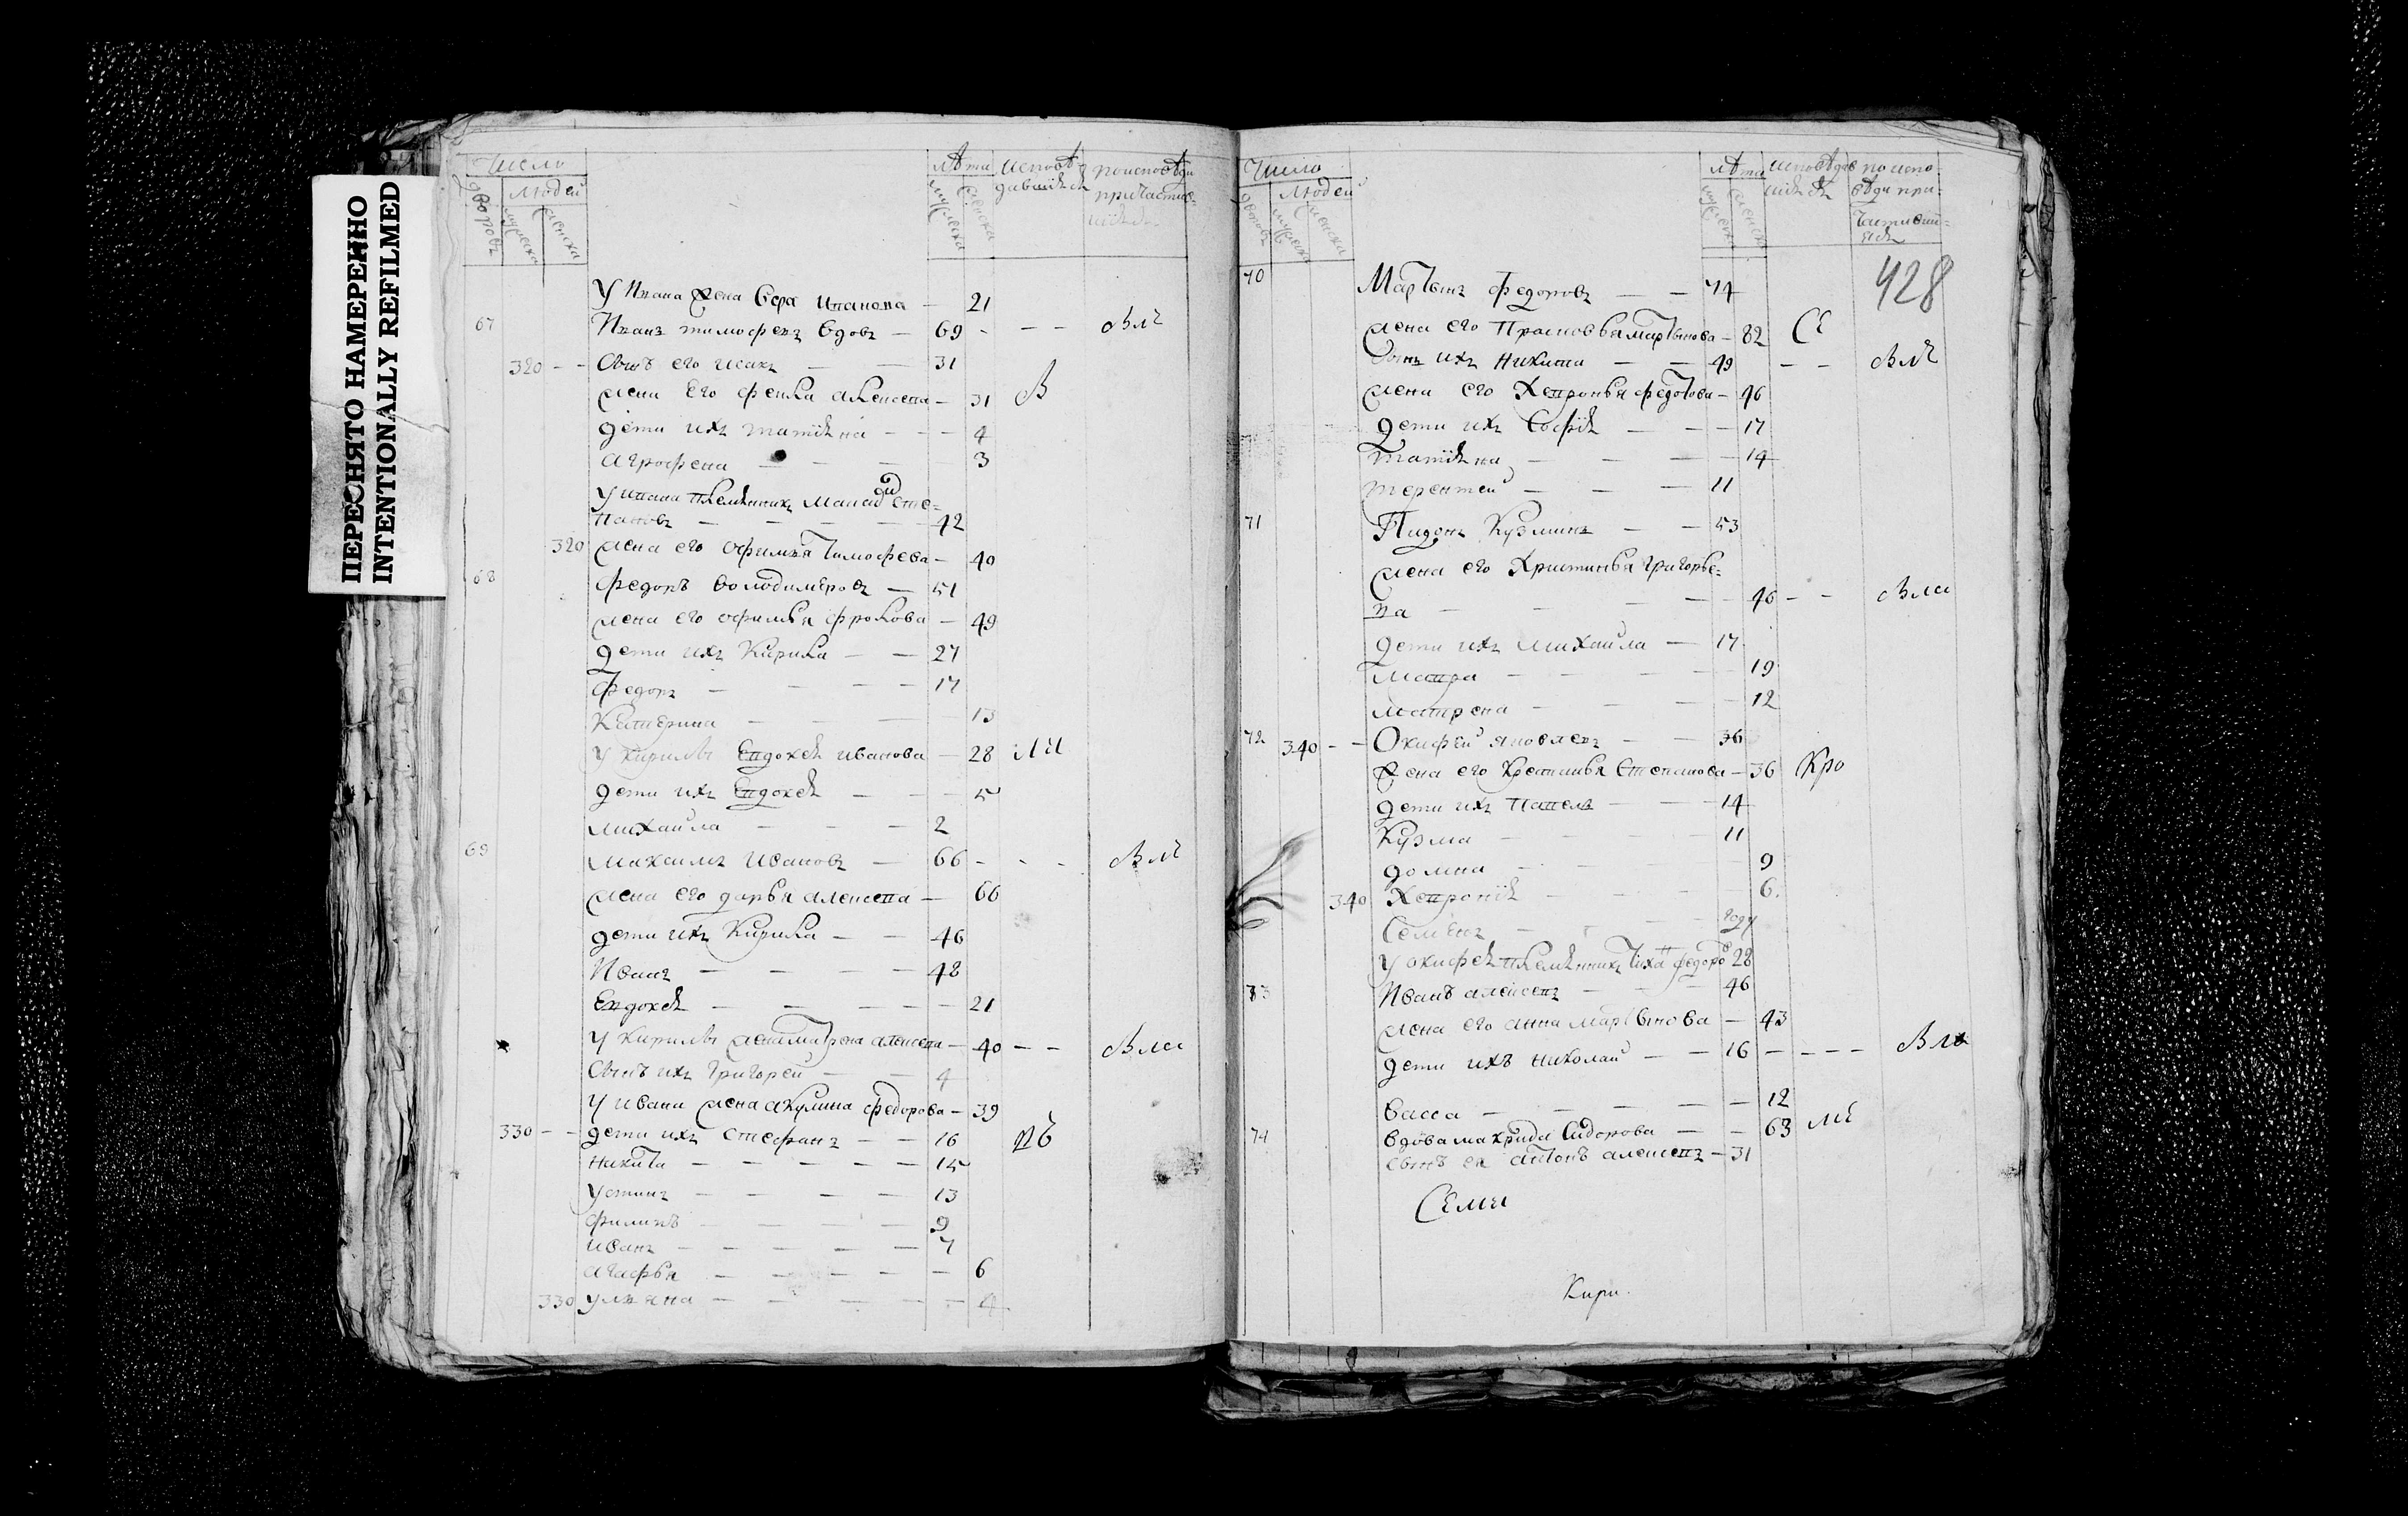 ПЕРЕСНЯТО НАМЕРЕННО
INTENTIONALLY REFILMED
Число
дворовъ
Людей
мужеска
женска
лѣта
мужеска
женска
исповѣ
давшiяся
по исповѣди
причастив-
шiяся
У Ивана жена Вера Иванова — 21
67 Иванъ тимофевъ вдовъ — 69
320 Сынъ его исакъ — 31
жена его фекла алексева — 31
дети ихъ татiяна — 4
агрофена — 3
У ивана племянникъ
пановъ — 42
320 жена его офимья тимофева — 40
68 федоръ володимѣровъ — 51
жена его офимья фролова — 49
дети ихъ Кирила — 27
федоръ — 17
Катерина — 13
У Кирилы Евдокея иванова — 28
дети ихъ Евдокея — 5
михаила — 2
69 михаилъ ивановъ — 66
жена его дарья алексева — 66
дети ихъ Кирила — 46
Иванъ — 48
Евдокея — 21
У Кирилы жена матрена алексева — 40
Сынъ ихъ григорей — 4
У ивана жена акулина федорова — 39
330 дети ихъ стефанъ — 16
никита — 15
устинъ — 13
филипъ — 9
иванъ — 7
агафья — 6
330 ульяна — 4
Число
дворовъ
Людей
мужеска
женска
лѣта
мужеска
женска
исповѣдав
шiяся
по испо-
вѣди при-
частивш-
iяся
428
70 Мартынъ федоровъ — 74
жена его Прасковья мартынова — 82
Сынъ ихъ никита — 49
жена его Хевронья федотова — 46
дети ихъ Софiя — 17
татiяна — 14
терентей — 11
71 Кузминъ — 53
жена его Христинья григорье-
ва — 46
дети ихъ михаила — 17
мавра — 19
матрена — 12
72 340 Окифей яковлевъ — 36
жена его Степанова — 36
дети ихъ Павелъ — 14
Кузма — 11
домна — 9
340 Хеврония — 6
Семенъ — году
У окифея племянникъ федоро 28
73 Иванъ алексевъ — 46
жена его анна мартынова — 43
дети ихъ николай — 16
васса — 12
74 вдова макрида Сидорова — 63
сынъ ея антонъ алексевъ — 31
Кири.